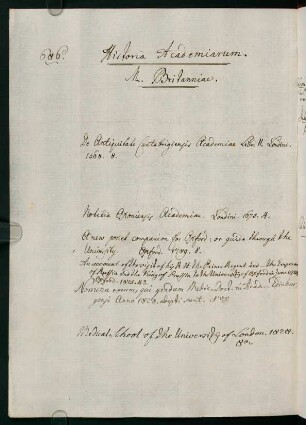 686.
Historia Academiarum.
M. Britanniae.
De Antiquitate Cantabrigiensis Academiae Libri II. Londini.
1568. 8.
Notitia Oxoniensis Academiae. Londini 1675. 4.
A new pocket companion for Oxford: or guide through the
University. Oxford. 1789. 8.
An account of the visit of his R. H. the Prince Regent and the Emperor
of Russia and the King of Prussia to the University of Oxford in June 1814
Oxford. 1815.
Nomina eorum, qui gradum Medic. Doct. in Acad. Edinbur
Anno 1826. adepti sunt. 8.
Medical School of the University of London. 1828.
8.